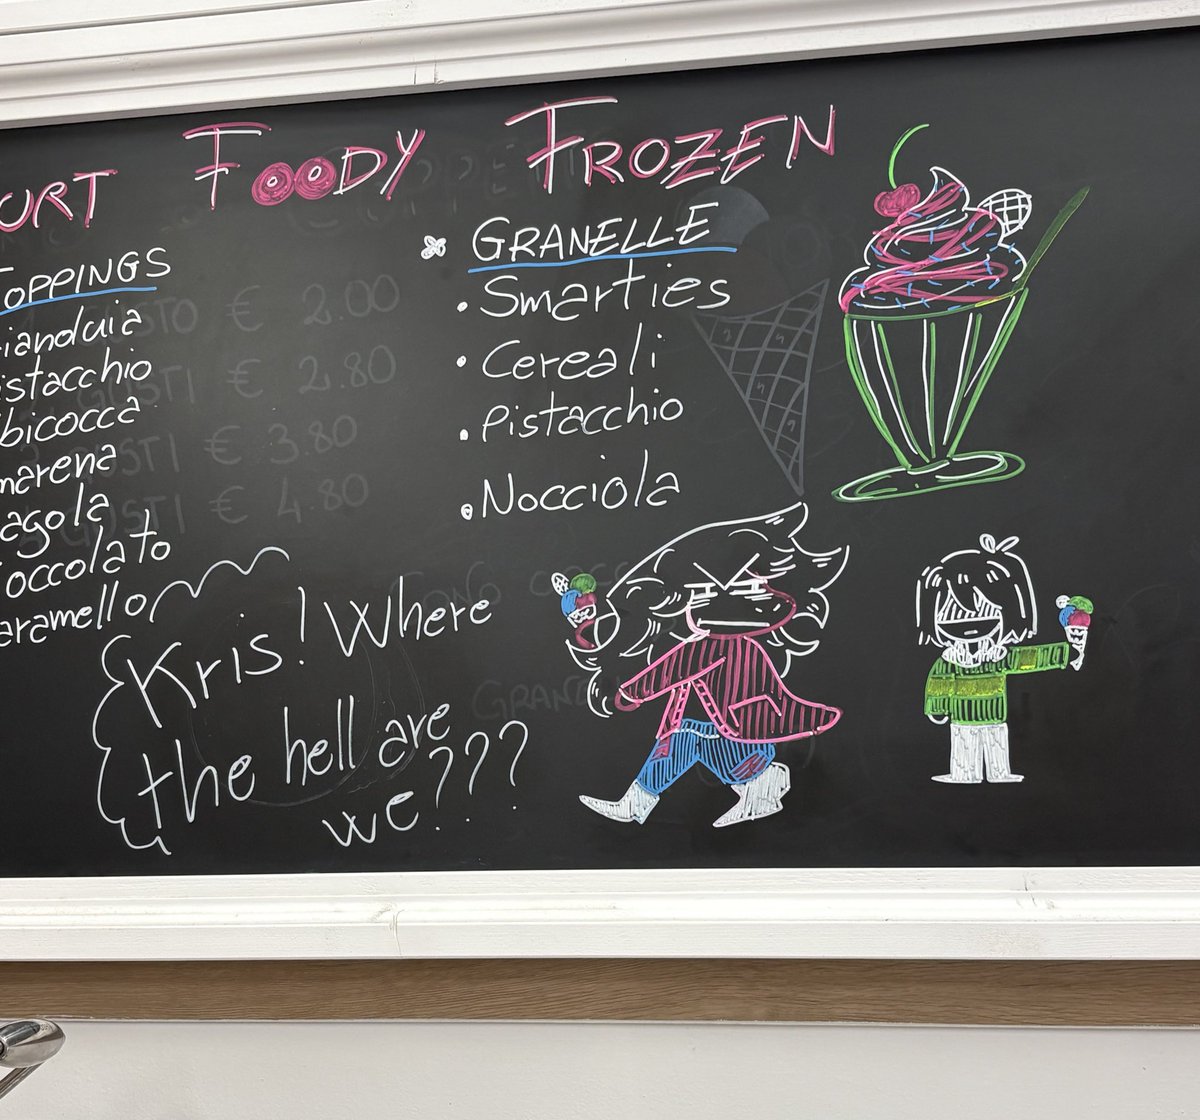 URT FOODY FROZEN
TOPPINGS
ianduia
istacchio
bicocca
marena
agola
ioccolato
aramello
GRANELLE
• Smarties
• Cereali
• Pistacchio
• Nocciola
€ 2.00
USTI € 2.80
USTI € 3.80
GUSTI € 4.80
Kris! Where
the hell are
we???